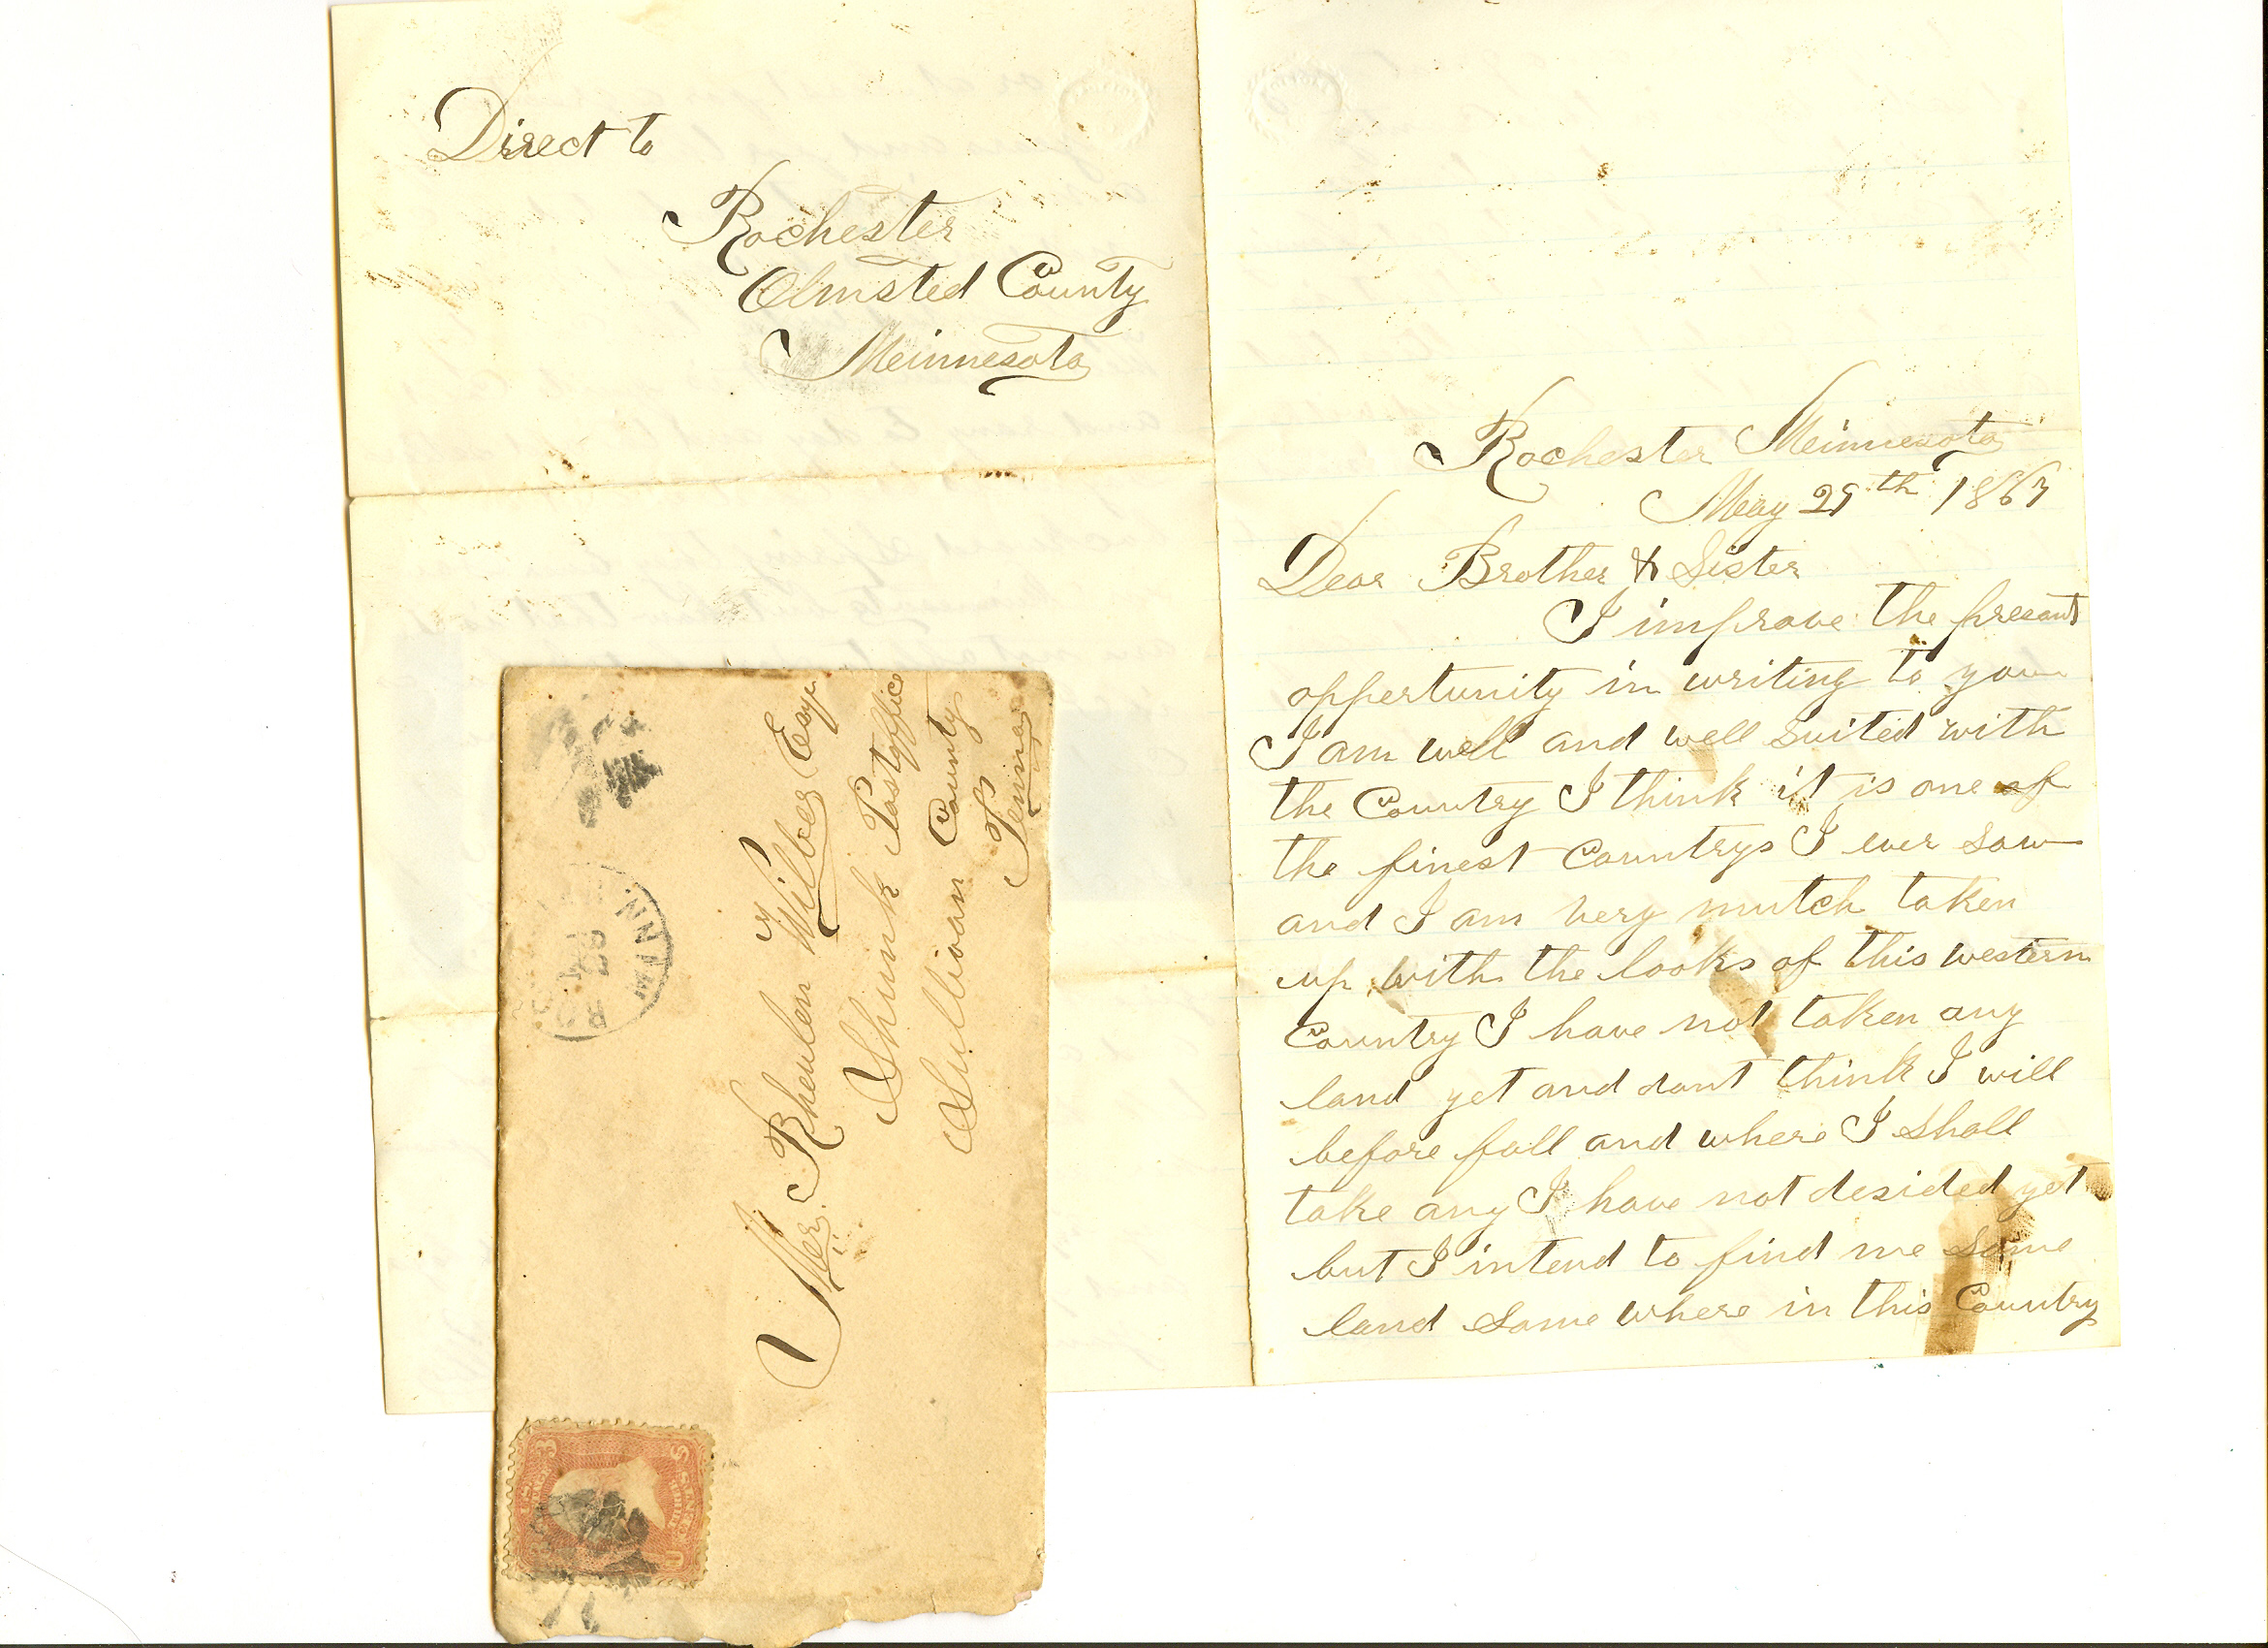 Direct to
Rochester
Olmsted County
Meinnesota
Rochester Meinnesota
May 29th 1867
Dear Brother & Sister
I improve the presant
oppertunity in writing to you
I am well and well suited with
the Country I think it is one of
the finest Countrys I ever saw
and I am very mutch taken
up with the looks of this western
Country I have not taken any
land yet and dont think I will
before fall and where I shall
take any I have not desided yet
but I intend to find me some
land some where in this Country
Mr. Rheuben Wilber Esqr
Shunk Postoffice
Sullivan County
Penna
MINN